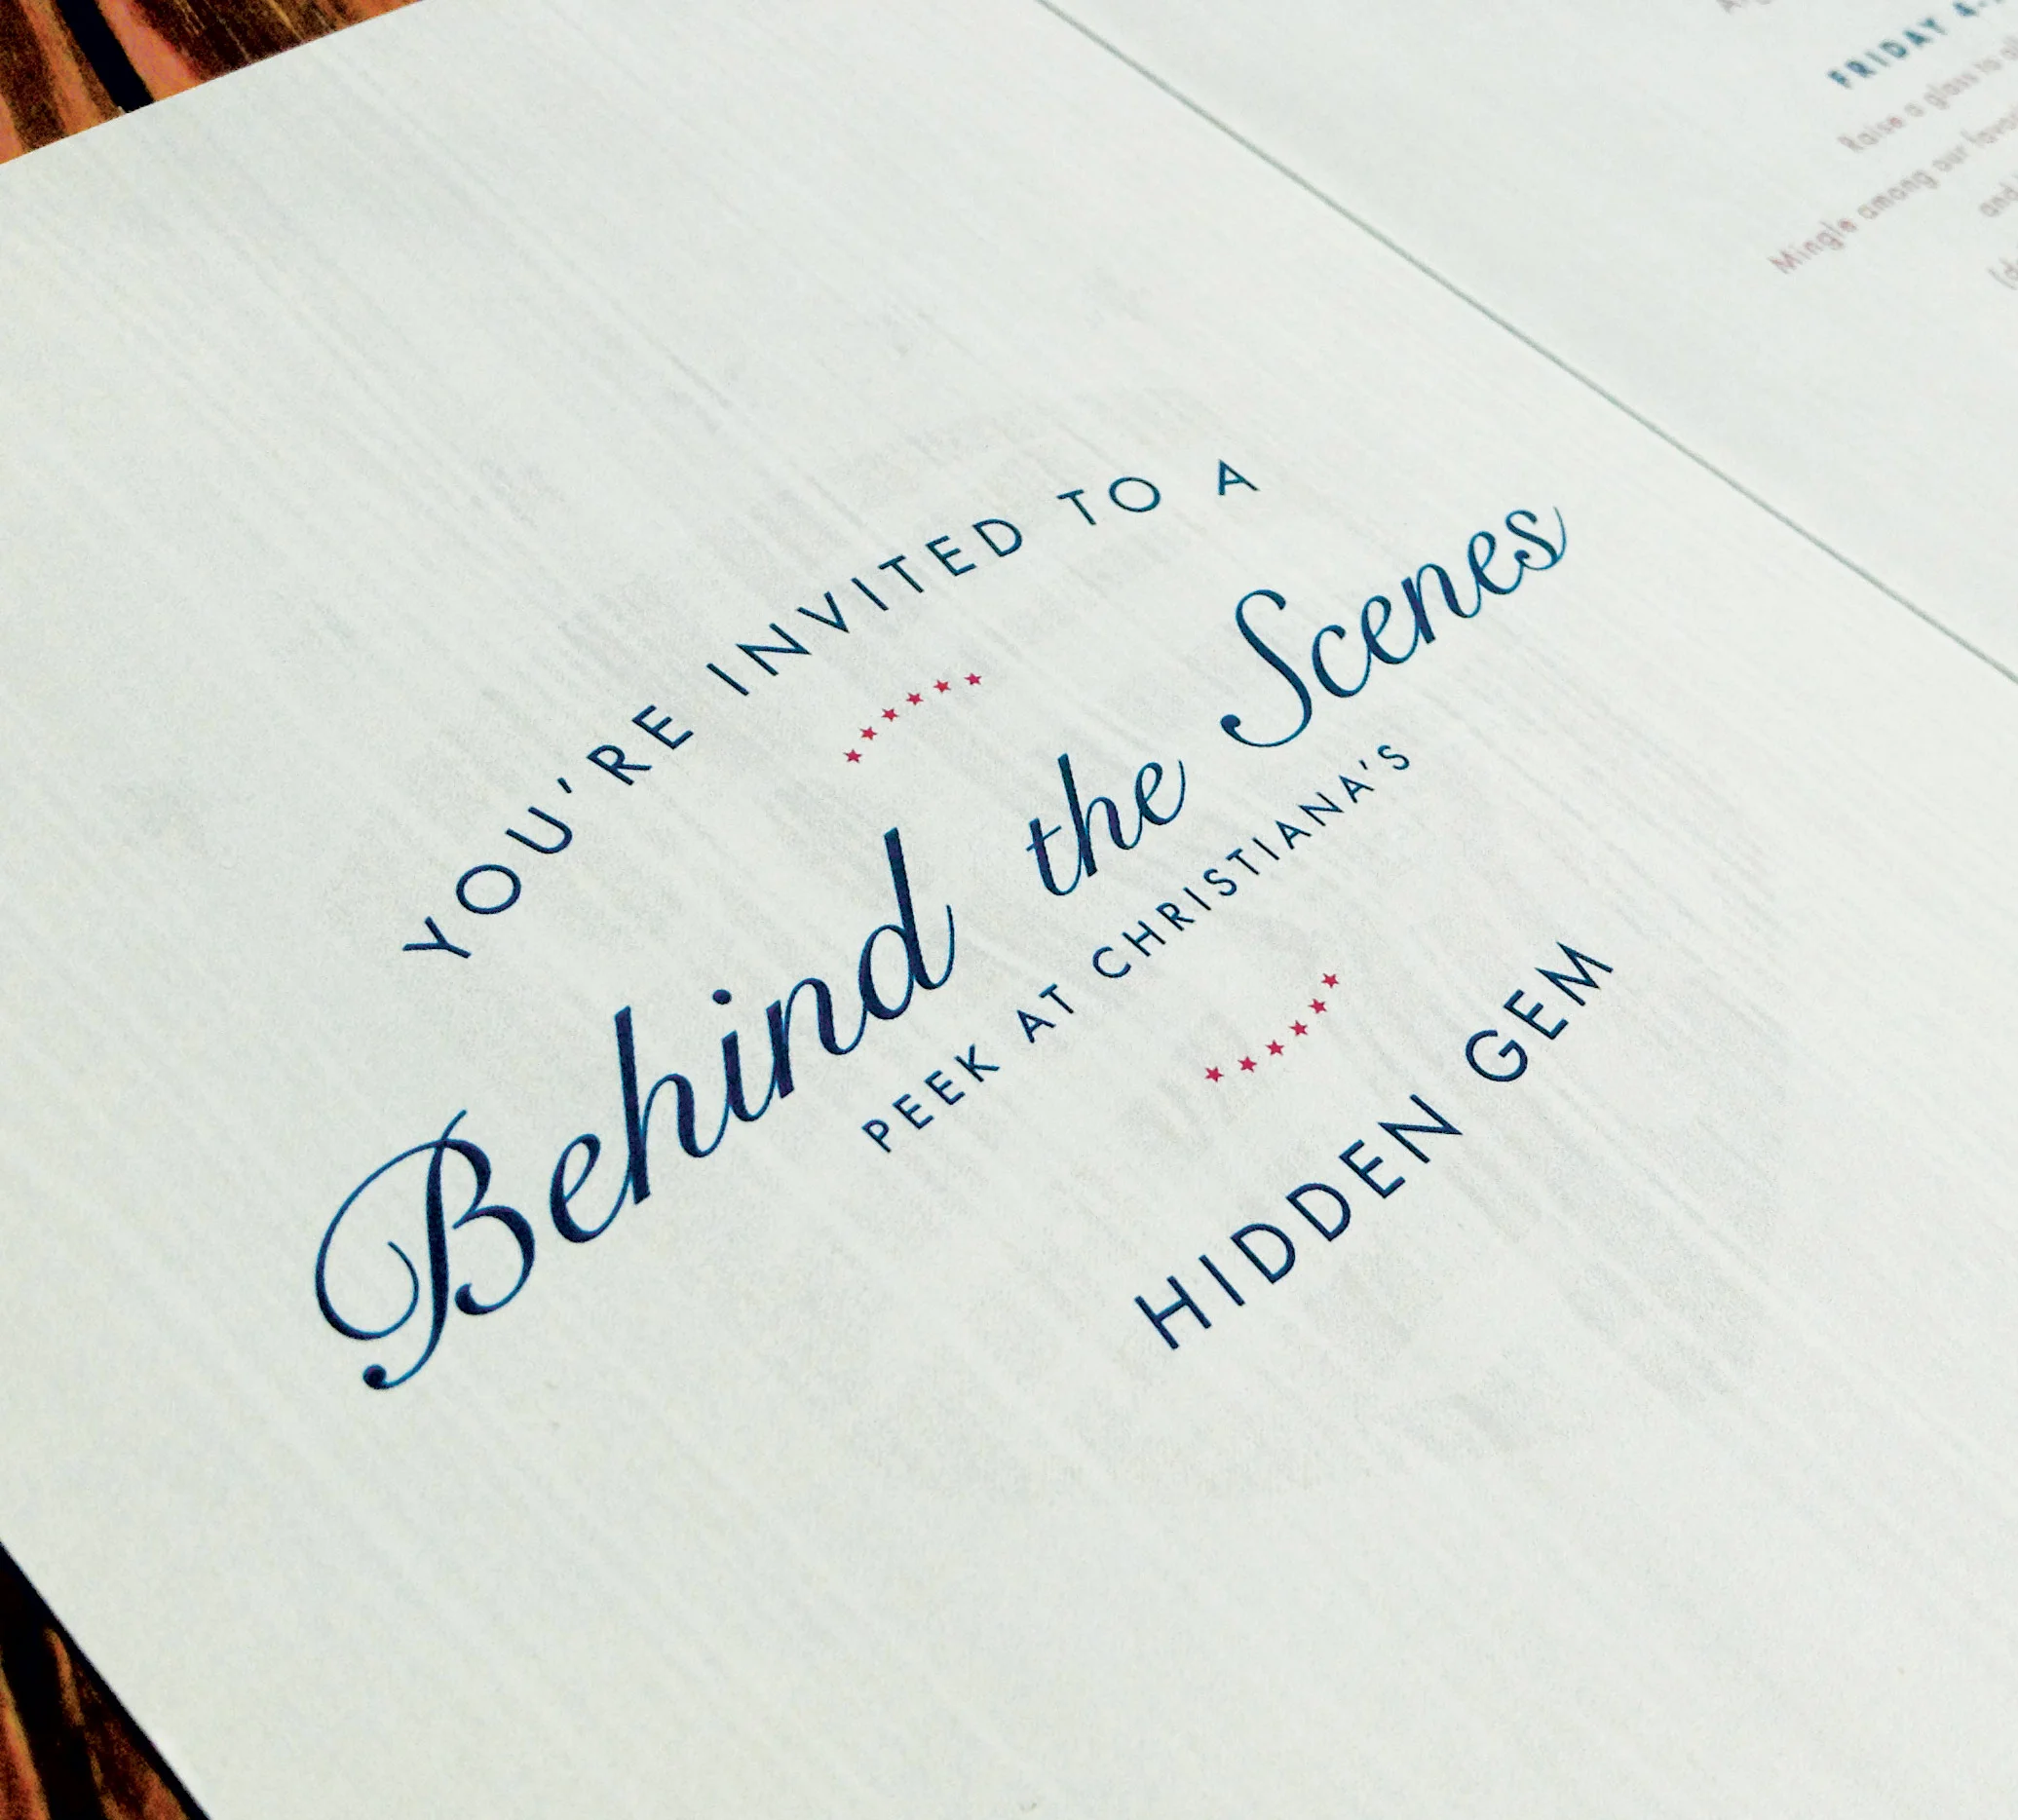 YOU'RE INVITED TO A
Behind the Scenes
PEEK AT CHRISTIANA'S
HIDDEN GEM
FRIDAY 4-
Raise a glass to
Mingle among our
and